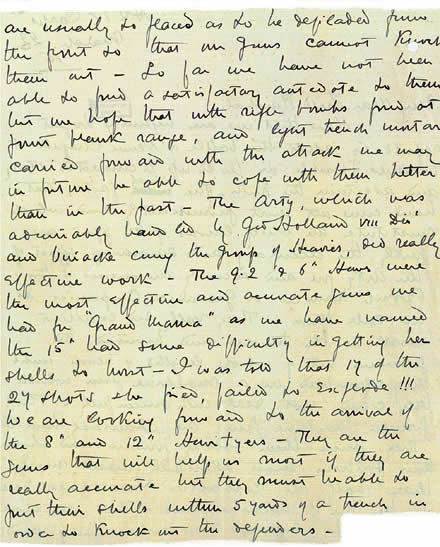 are usually so placed as to be defiladed from
the front so that our guns cannot Knock
them out – So far we have not been
able to find a satisfactory antidote to them
but we hope that with rifle bombs fired at
point blank range, and light trench mortars
carried forward with the attack we may
in future be able to cope with them better
than in the past – The Arty, which was
admirably handled by Genl Holland VIII Div
and         the Group of Heavies, did really
effective work – The 9.2 & 6" Hows were
the most effective and accurate guns we
had for "Grand Mama" as we have named
the 15" had some difficulty in getting her
shells to burst – I was told that 17 of the
27 shots she fired, failed to Explode !!!
We are looking forward to the arrival of
the 8" and 12" Howitzers – They are the
guns that will help us most if they are
really accurate but they must be able to
put their shells within 5 yards of a trench in
order to Knock out the defenders –